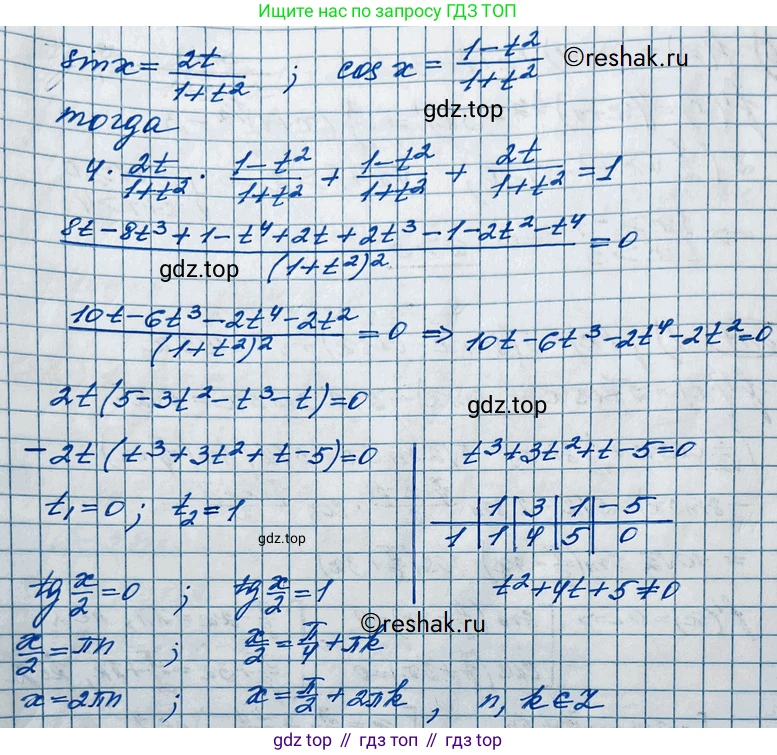 Ищите нас по запросу ГДЗ ТОП
sin x = 2t/(1+t²) ; cos x = (1-t²)/(1+t²) ©reshak.ru
тогда gdz.top
4 · 2t/(1+t²) · (1-t²)/(1+t²) + (1-t²)/(1+t²) + 2t/(1+t²) = 1
(8t-8t³+1-t⁴+2t+2t³-1-2t²-t⁴)/(1+t²)² = 0
gdz.top
(10t-6t³-2t⁴-2t²)/(1+t²)² = 0 ⇒ 10t-6t³-2t⁴-2t²=0
2t(5-3t²-t³-t)=0 gdz.top
-2t(t³+3t²+t-5)=0
t₁=0; t₂=1
t³+3t²+t-5=0
| 1 | 3 | 1 | -5
1 | 1 | 4 | 5 | 0
gdz.top
t²+4t+5≠0
tg x/2 = 0 ; tg x/2 = 1
©reshak.ru
x/2 = πn ; x/2 = π/4 + πk
x=2πn ; x = π/2 + 2πk, n, k ∈ Z
gdz.top // гдз.топ // gdz.top